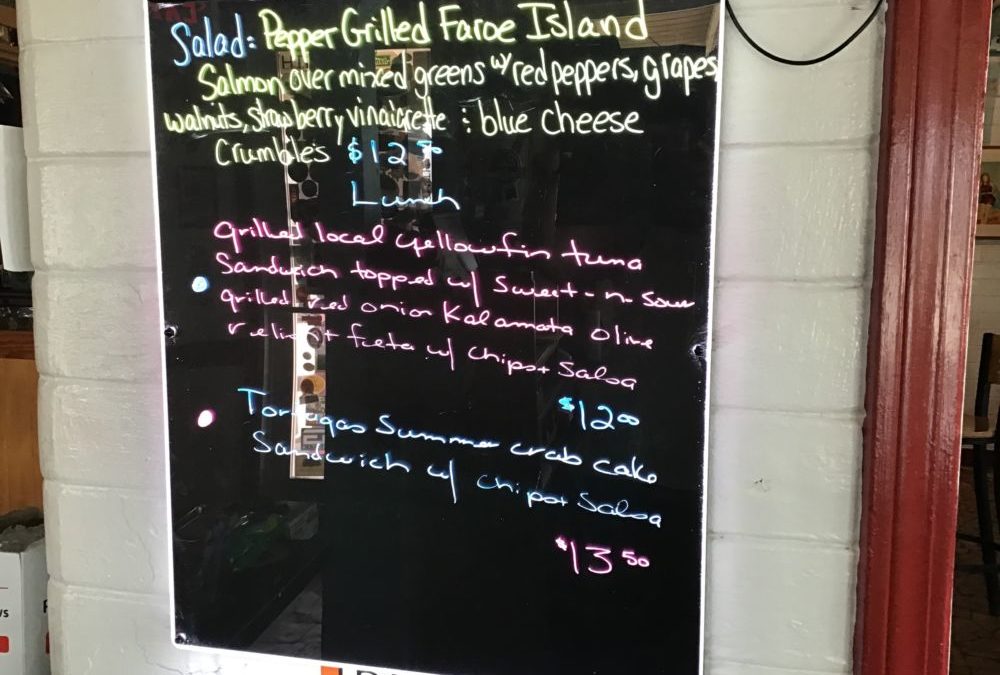 Salad: Pepper Grilled Faroe Island
Salmon over mixed greens w/ red peppers, grapes,
walnuts, strawberry vinaigrette & blue cheese
Crumbles $12.50
Lunch
Grilled local yellowfin tuna
Sandwich topped w/ Sweet-n-Sour
grilled red onion Kalamata olive
relish + feta w/ chips + Salsa
$12.00
Tortugas Summer crab cake
Sandwich w/ chips + Salsa
$13.50